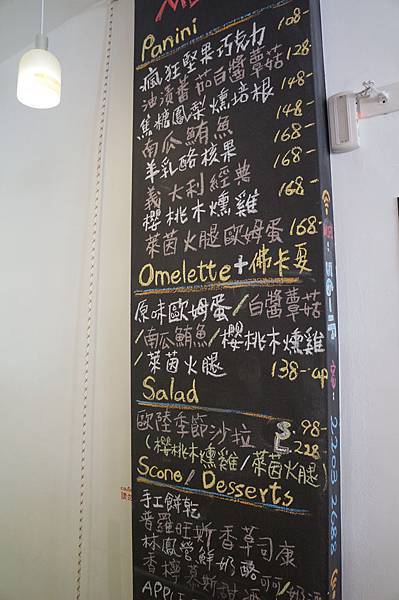 Panini
瘋狂堅果巧克力 108-
油漬番茄白醬蘑菇 128-
焦糖鳳梨燻培根 148-
南瓜鮪魚 148-
羊乳酪核果 168-
義大利經典 168-
櫻桃木燻雞 168-
萊茵火腿歐姆蛋 168-
Omelette+佛卡夏
原味歐姆蛋/白醬蘑菇
/南瓜鮪魚/櫻桃木燻雞
/萊茵火腿 138-up
Salad
歐陸季節沙拉 S. 98-
(櫻桃木燻雞/萊茵火腿) L. 228-
Scone/Desserts
手工餅乾
普羅旺斯香草司康
林鳳營鮮奶酪
香檸慕斯甜酒